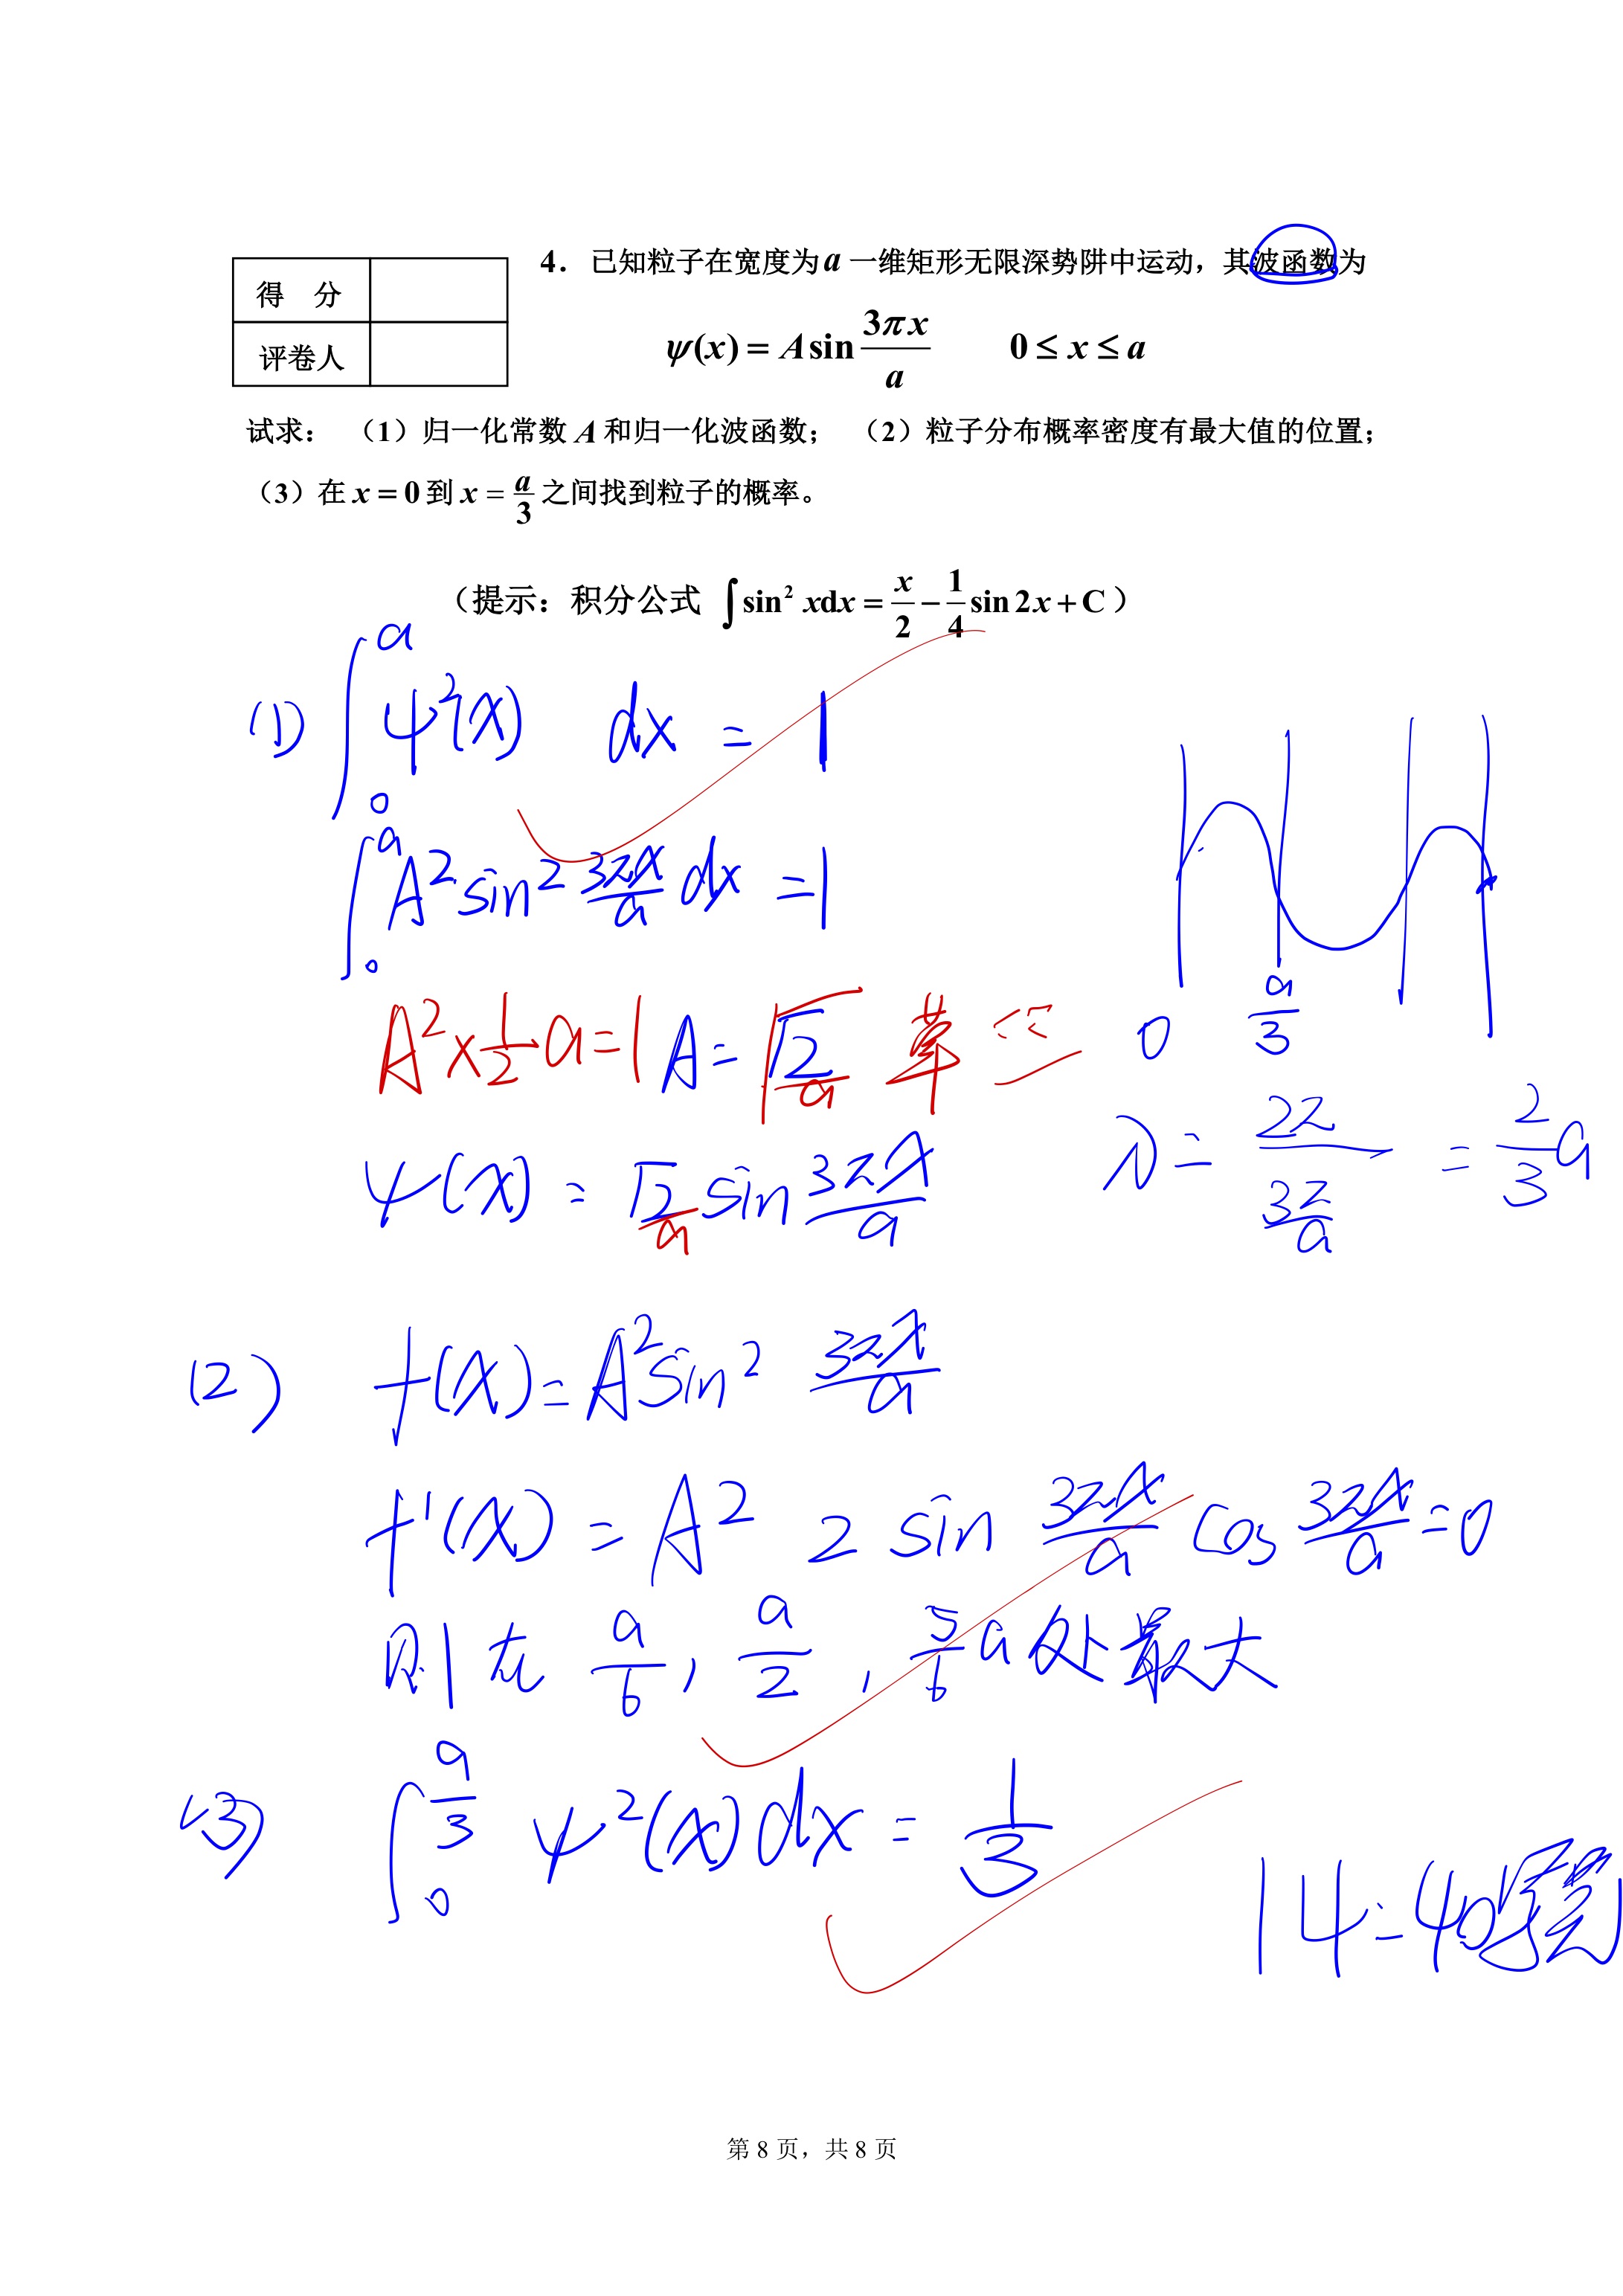 得 分
评卷人
4． 已知粒子在宽度为a 一维矩形无限深势阱中运动，其波函数为
ψ(x) = A sin 3πx/a 0 ≤ x ≤ a
试求： （1）归一化常数 A 和归一化波函数； （2）粒子分布概率密度有最大值的位置；
（3）在 x = 0 到 x = a/3 之间找到粒子的概率。
（提示：积分公式 ∫sin² xdx = x/2 − 1/4 sin 2x + C）
(1) ∫₀ᵃ ψ²(x) dx = 1
∫₀ᵃ A² sin² 3πx/a dx = 1
A² × 1/2 a = 1 A = √(2/a)
0 a/3
ψ(x) = √(2/a) sin 3πx/a
λ = 2π/(3π/a) = 2/3 a
(2) f(x) = A² sin² 3πx/a
f'(x) = A² 2 sin 3πx/a cos 3πx/a = 0
则在 a/6, a/2, 5/6 a 处最大
(3) ∫₀^(a/3) ψ²(x) dx = 1/3
14:40
第 8 页，共 8 页